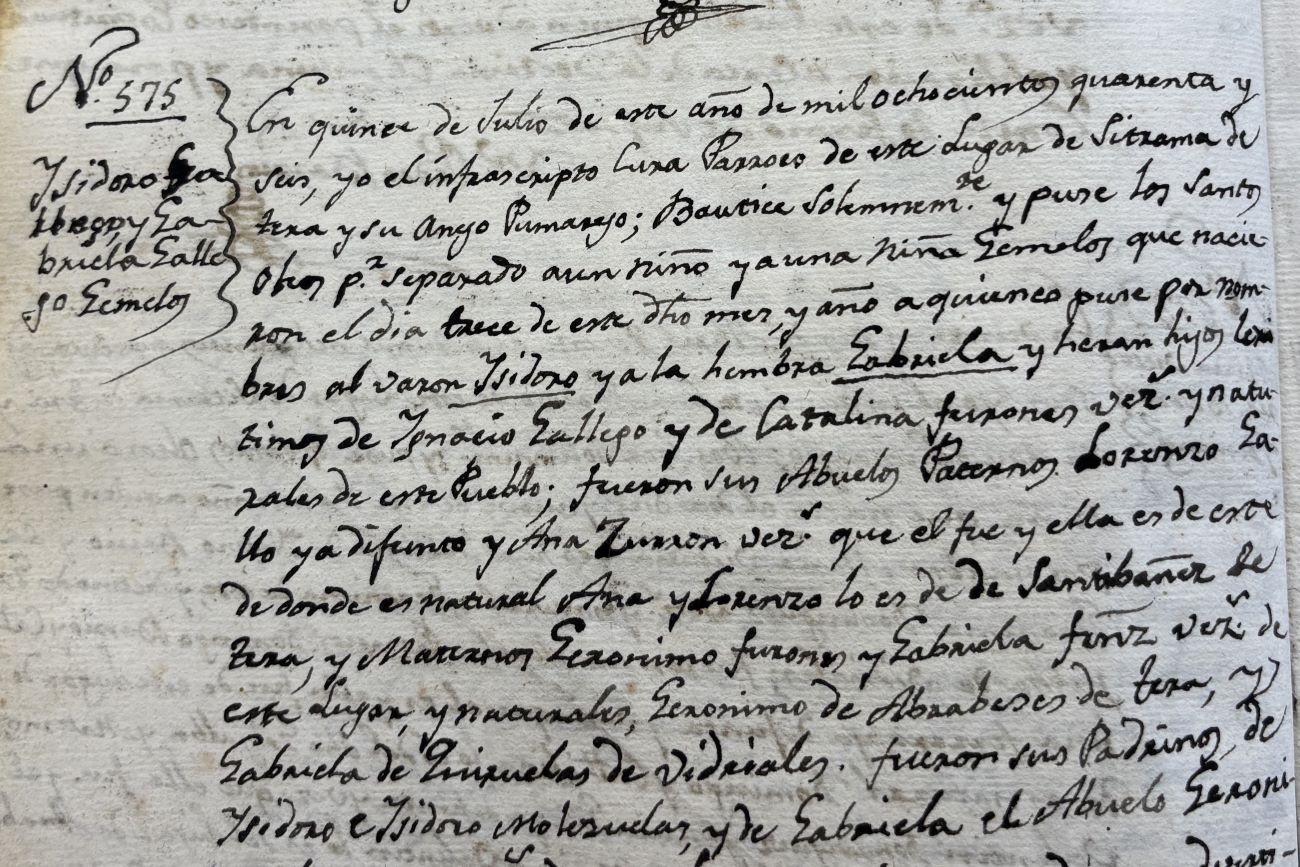 Nº. 575
Isidoro
y Ga-
briela Galle
go. Gemelos
En quince de Julio de este año de mil ochocientos quarenta y
seis, yo el infrascripto Cura Parroco de este Lugar de Sitrama de
tera y su Anejo Pumarejo; Bautice Solemnem.te y puse los Santos
Oleos p.r separado a un niño y a una niña Gemelos que nacie-
ron el dia trece de este dho mes, y año a quienes puse por nom-
bres al varon Isidoro y a la hembra Gabriela y heran hijos lexi
timos de Ignacio Gallego y de Catalina furones vez.s y natu-
rales de este Pueblo; fueron sus Abuelos Paternos Lorenzo Ga-
llo ya difunto y Ana Zurron vez.s que el fue y ella es de este
de donde es natural Ana y Lorenzo lo es de de Santibañez de
tera, y Maternos Geronimo furones y Gabriela fern̄z vez.s de
este Lugar, y naturales, Geronimo de Abrabeses de tera, y
Gabriela de Quiruelas de Vidriales. fueron sus Padrinos, de
Isidoro e Isidoro Molezuelas, y de Gabriela el Abuelo Geroni-